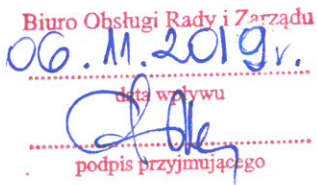 Biuro Obsługi Rady i Zarządu
06.11.2019r.
data wpływu
podpis przyjmującego